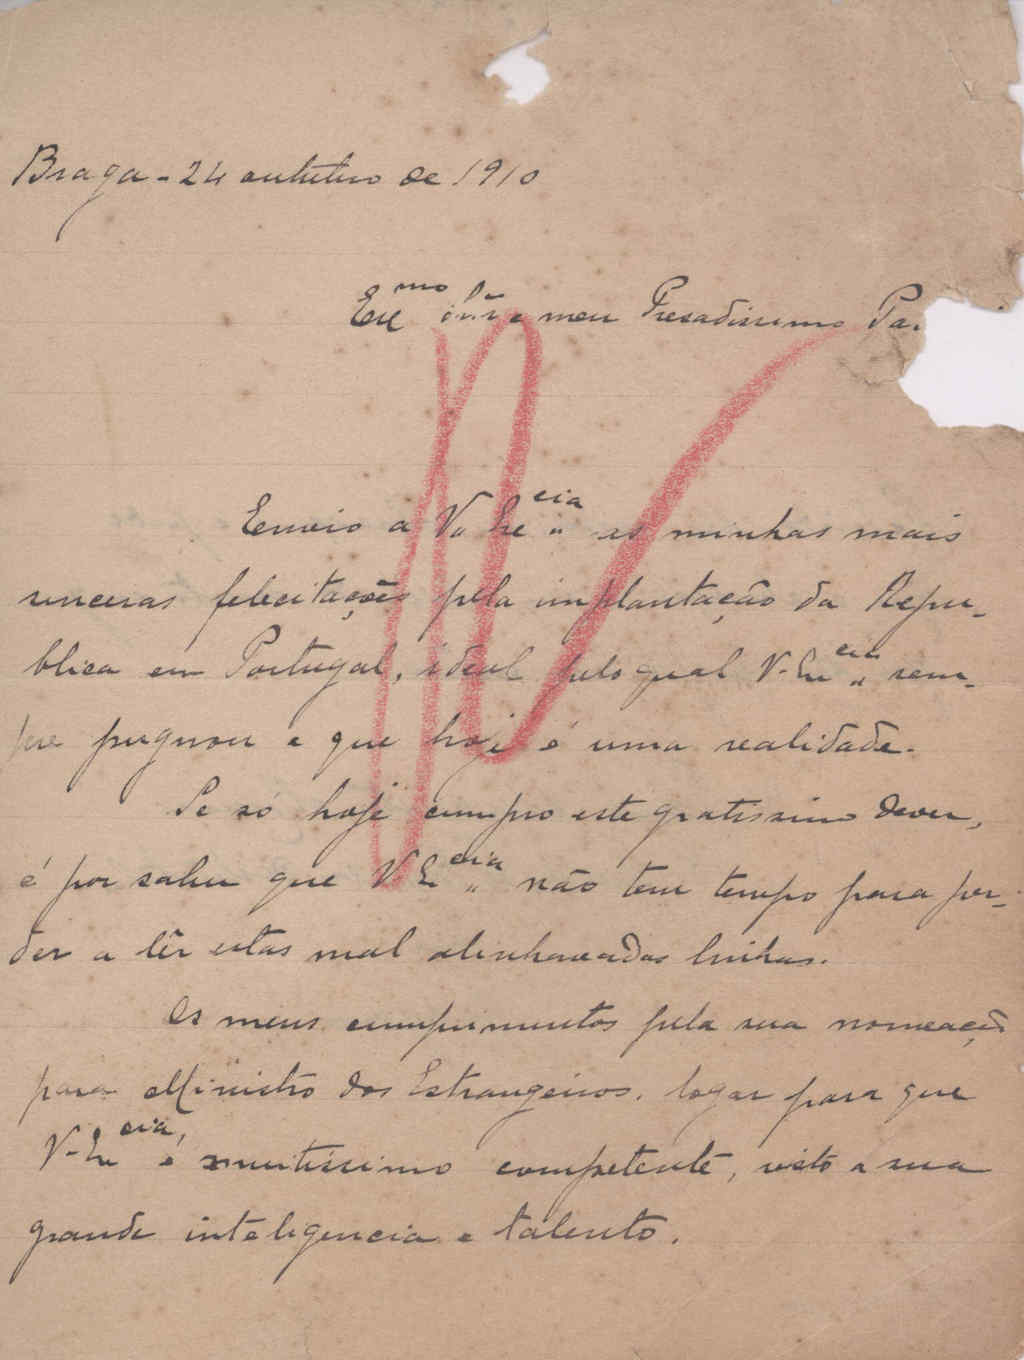 Braga - 24 outubro de 1910
Exmo Snr e meu Presadissimo
Envio a V. Excia as minhas mais
sinceras felicitações pela implantação da Repu-
blica em Portugal, ideal pelo qual V. Excia sem-
pre pugnou e que hoje é uma realidade.
Se só hoje cumpro este gratissimo dever,
é por saber que V Excia não tem tempo para per-
der a lêr estas mal alinhavadas linhas.
Os meus cumprimentos pela sua nomeação
para Ministro dos Estrangeiros, logar para que
V. Excia, é muitissimo competente, visto a sua
grande inteligencia e talento.